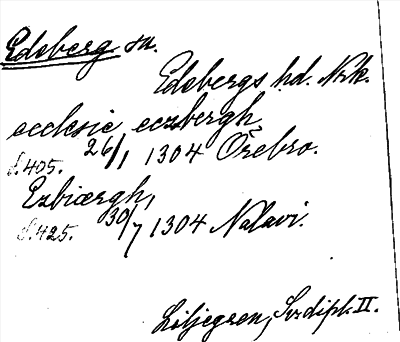 Edeberg sn.
Edebergs hd. Nrk.
ecclesie eczbergh
s. 405. 26/1 1304 Örebro.
Ezbiærgh,
s. 425. 30/7 1304 Nalavi.
Liljegren, Sv. dipl. II.